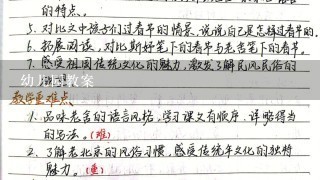 的特点。
5. 对比文中孩子们过春节的情景,说说自己是怎样过春节的。
6. 拓展阅读,对比斯妤笔下的春节与老舍笔下的春节。
7. 感受祖国传统文化的魅力,激发了解民风民俗的
幼儿园教案
教学重难点
1. 品味老舍的语言风格,学习课文有顺序、详略得当
的写法。(难)
2. 了解老北京的风俗习惯,感受传统年文化的独特
魅力。(重)